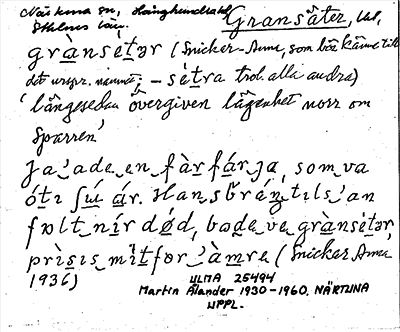 Närtuna sn, Långhundra hd Gransäter, lht.
Sthlms län.
grànsé̱tər (Snicker-Anna, som bör känna till
det urspr. namnet; – sé̱tra trol. alla andra)
'längesedan övergiven lägenhet norr om
Sparren'
ja 'ade en fàr fár ja, som va
óti ʃú ár. Hans brántils 'an
fʊlt nír dǿd, bode ve grànsé̱tər,
prìsis mìtfor 'àmre (Snickar Anna
1936)
ULMA 25494
Martin Ålander 1930-1960. NÄRTUNA
UPPL.